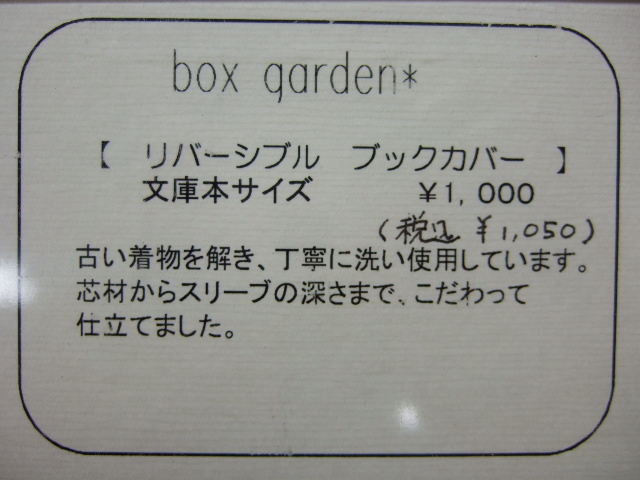 box garden*
【 リバーシブル ブックカバー 】
文庫本サイズ ¥1,000
(税込 ¥1,050)
古い着物を解き、丁寧に洗い使用しています。
芯材からスリーブの深さまで、こだわって
仕立てました。